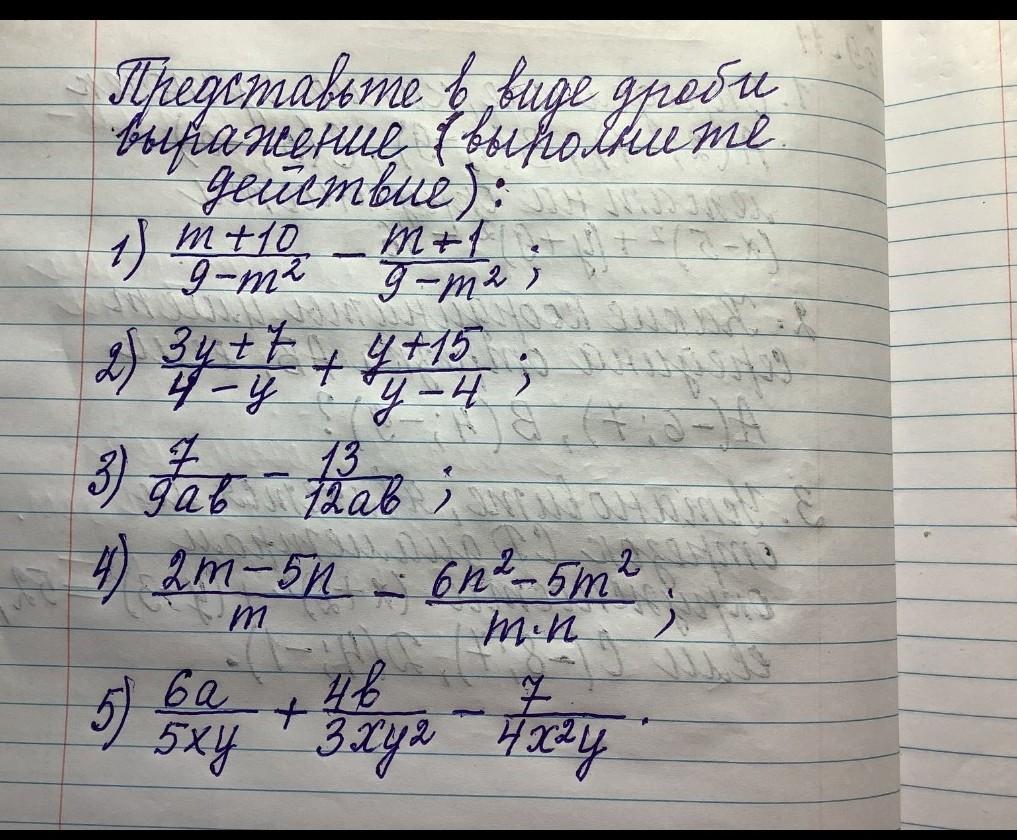 Представьте в виде дроби
выражение (выполните
действие):
1) \frac{m+10}{9-m²} - \frac{m+1}{9-m²};
2) \frac{3y+7}{4-y} + \frac{y+15}{y-4};
3) \frac{7}{9ab} - \frac{13}{12ab};
4) \frac{2m-5n}{m} - \frac{6n²-5m²}{m·n};
5) \frac{6a}{5xy} + \frac{4b}{3xy²} - \frac{7}{4x²y}.